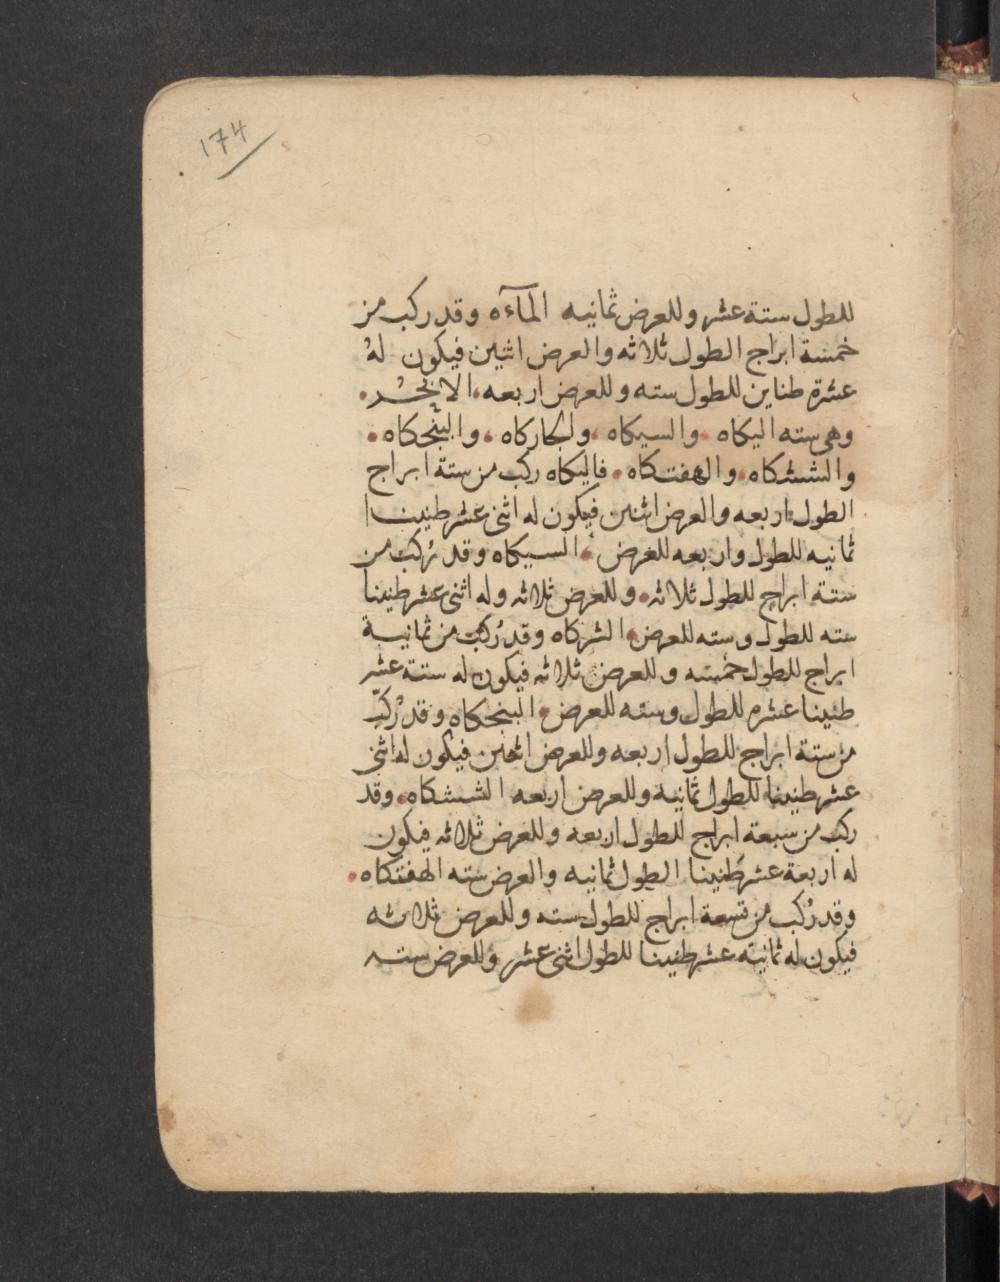 174
للطول ستة عشر وللعرض ثمانيه المآءه وقد ركب من
خمسة ابراج الطول ثلاثه والعرض اثنين فيكون له
عشرة طناين للطول سته وللعرض اربعه.
وهى سته اليكاه . والسيكاه . والجاركاه . والپنجكاه .
والششكاه . والهفتكاه . فاليكاه ركب من ستة ابراج
الطول اربعه والعرض اثنين فيكون له اثنى عشر طنينا
ثمانيه للطول واربعه للعرض . السيكاه وقد رُكب من
ستة ابراج للطول ثلاثه . وللعرض ثلاثه وله اثنى عشر طنينا
سته للطول وسته للعرض . الشركاه وقد رُكب من ثمانية
ابراج للطول خمسه وللعرض ثلاثه فيكون له ستة عشر
طنينا عشره للطول وسته للعرض . البنجكاه وقد رُكّب
من ستة ابراج للطول اربعه وللعرض اثنين فيكون له اثنى
عشر طنينا للطول ثمانية وللعرض اربعه الششكاه . وقد
ركب من سبعة ابراج للطول اربعه وللعرض ثلاثه فيكون
له اربعة عشر طنينا الطول ثمانيه والعرض سته الهفتكاه .
وقد رُكب من تسعة ابراج للطول سته وللعرض ثلاثه
فيكون له ثمانية عشر طنينا للطول اثنى عشر وللعرض سته